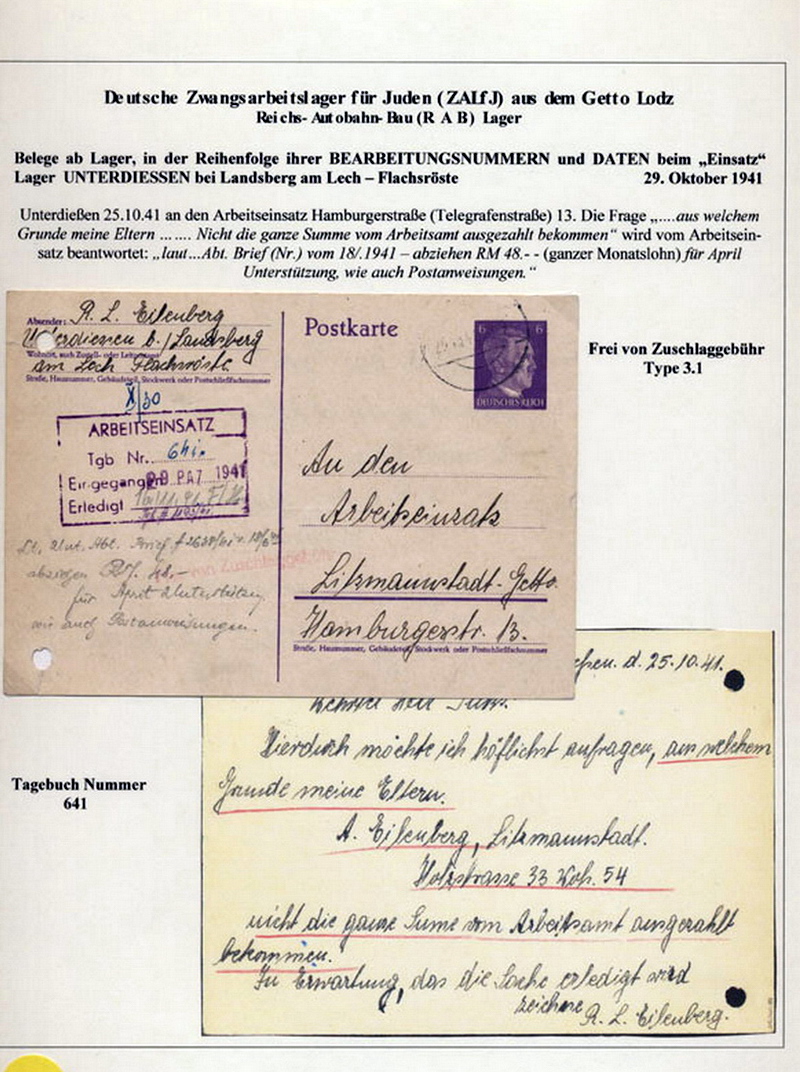 Deutsche Zwangsarbeitslager für Juden (ZALfJ) aus dem Getto Lodz
Reichs- Autobahn- Bau (R A B) Lager
Belege ab Lager, in der Reihenfolge ihrer BEARBEITUNGSNUMMERN und DATEN beim „Einsatz“
Lager UNTERDIESSEN bei Landsberg am Lech – Flachsröste 29. Oktober 1941
Unterdießen 25.10.41 an den Arbeitseinsatz Hamburgerstraße (Telegrafenstraße) 13. Die Frage „....aus welchem
Grunde meine Eltern ... .... Nicht die ganze Summe vom Arbeitsamt ausgezahlt bekommen“ wird vom Arbeitsein-
satz beantwortet: „laut...Abt. Brief (Nr.) vom 18/.1941 – abziehen RM 48.- - (ganzer Monatslohn) für April
Unterstützung, wie auch Postanweisungen.“
Absender: R. L. Eilenberg
Unterdiessen b./Landsberg
Wohnort, auch Zustell- oder Leitpostamt
am Lech Flachsröste.
Straße, Hausnummer, Gebäudeteil, Stockwerk oder Postschließfachnummer
X/30
ARBEITSEINSATZ
Tgb Nr. 641.
Eingegangen 1941
Erledigt
Postkarte
6 6
DEUTSCHES REICH
Frei von Zuschlaggebühr
Type 3.1
An den
Arbeitseinsatz
Litzmannstadt-Getto.
Hamburgerstr. 13.
Straße, Hausnummer, Gebäudeteil, Stockwerk oder Postschließfachnummer
abziehen RM. 48.–
für April Unterstützung
wie auch Postanweisungen.
von Zuschlaggebühr
d. 25.10.41.
Hierdurch möchte ich höflichst anfragen, aus welchem
Grunde meine Eltern.
A. Eilenberg, Litzmannstadt.
Holzstrasse 33 Woh. 54
nicht die ganze Sume vom Arbeitsamt ausgezahlt
bekommen.
In Erwartung, das die Sache erledigt wird
zeichne R. L. Eilenberg.
Tagebuch Nummer
641